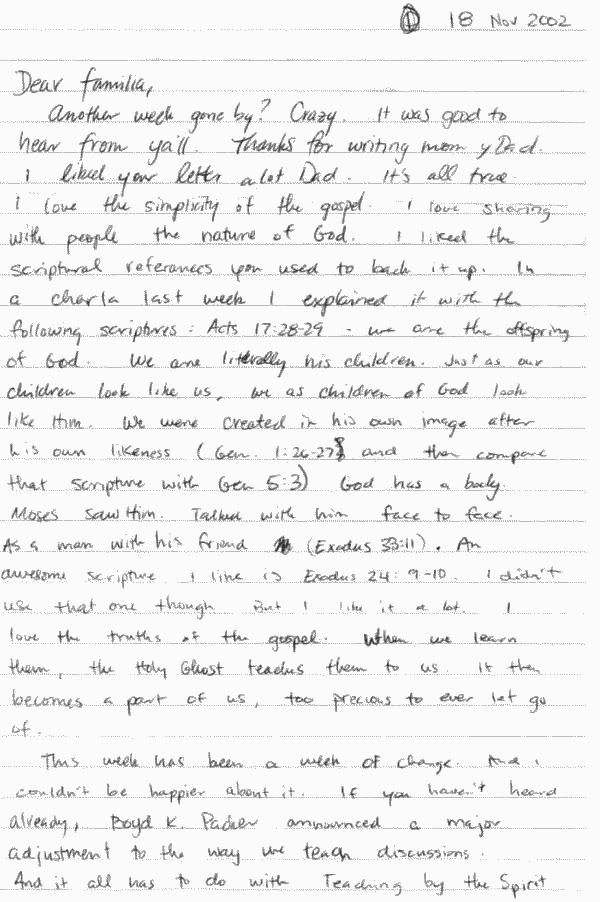 ① 18 Nov 2002
Dear familia,
Another week gone by? Crazy. It was good to
hear from ya'll. Thanks for writing mom y Dad.
I liked your letter alot Dad. It's all true.
I love the simplicity of the gospel. I love sharing
with people the nature of God. I liked the
scriptural referances you used to back it up. In
a charla last week I explained it with the
following scriptures: Acts 17:28-29 - we are the offspring
of God. We are literally his children. Just as our
children look like us, we as children of God look
like Him. We were created in his own image after
his own likeness (Gen. 1:26-27 and then compare
that scripture with Gen 5:3) God has a body.
Moses saw Him. Talked with him face to face.
As a man with his friend (Exodus 33:11). An
awesome scripture I like is Exodus 24:9-10. I didn't
use that one though. But I like it a lot. I
love the truths of the gospel. When we learn
them, the Holy Ghost teaches them to us. It then
becomes a part of us, too precious to ever let go
of.
This week has been a week of change. And I
couldn't be happier about it. If you haven't heard
already, Boyd K. Packer announced a major
adjustment to the way we teach discussions.
And it all has to do with Teaching by the Spirit